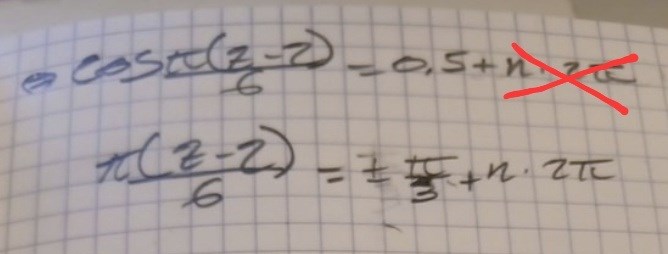 ⇔ cos π(z-2)/6 = 0.5 + n · 2π
π(z-2)/6 = ± π/3 + n · 2π